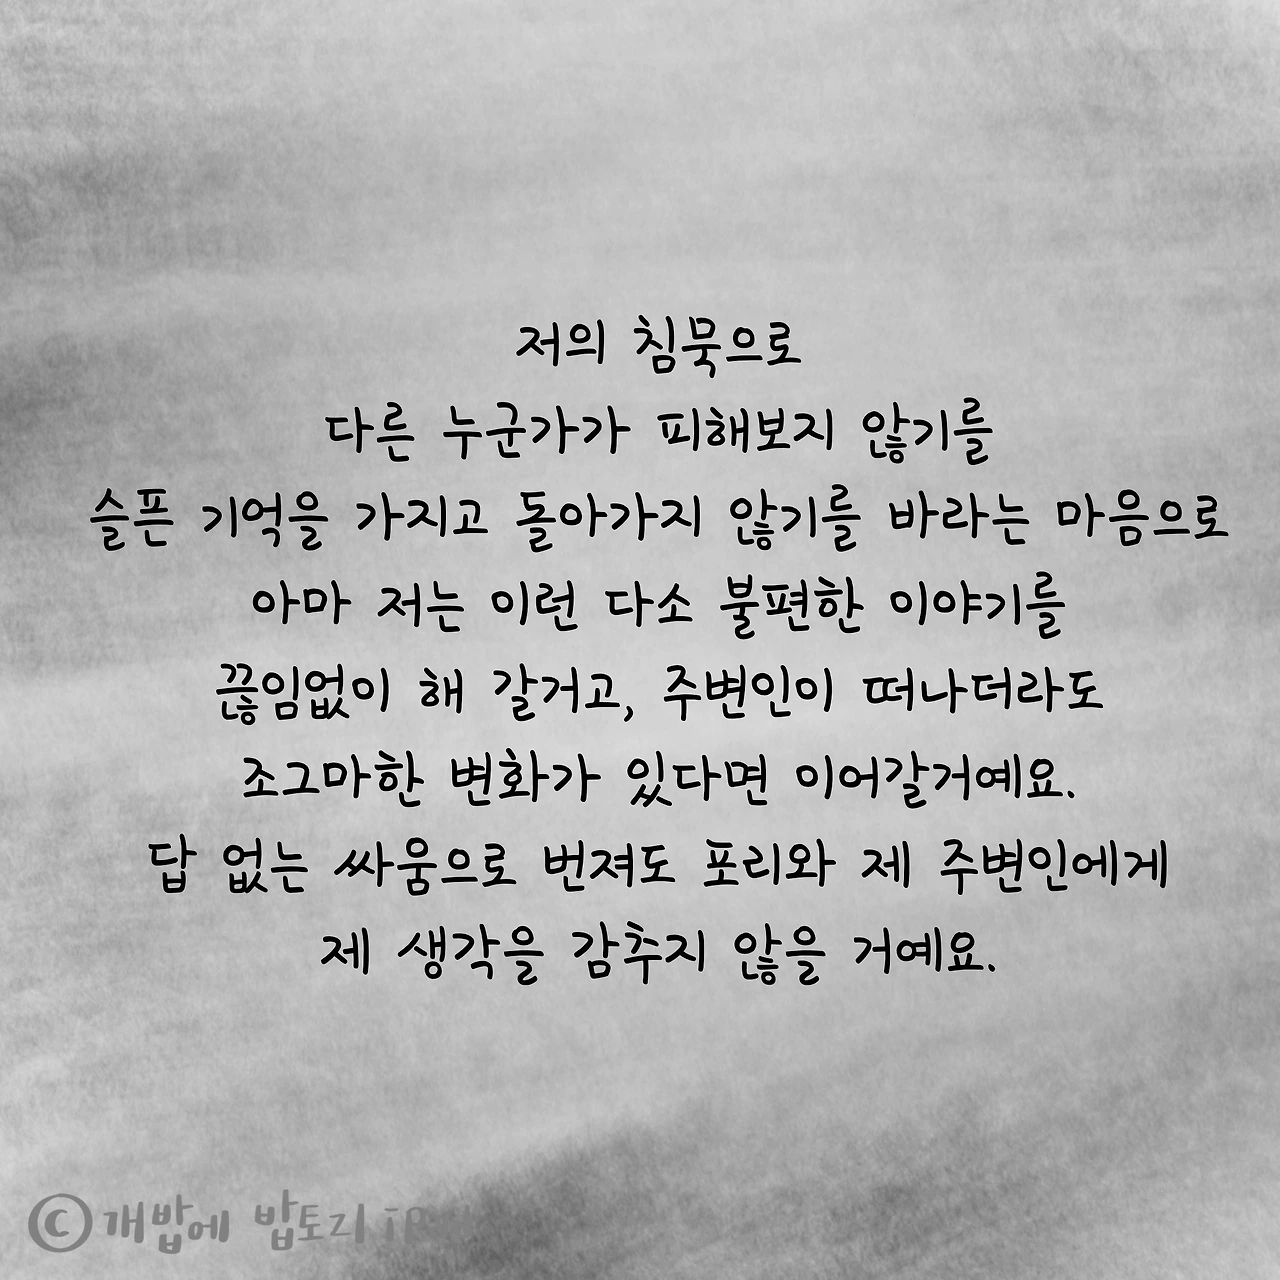 저의 침묵으로
다른 누군가가 피해보지 않기를
슬픈 기억을 가지고 돌아가지 않기를 바라는 마음으로
아마 저는 이런 다소 불편한 이야기를
끊임없이 해 갈거고, 주변인이 떠나더라도
조그마한 변화가 있다면 이어갈거예요.
답 없는 싸움으로 번져도 포리와 제 주변인에게
제 생각을 감추지 않을 거예요.
© 개밥에 밥토리